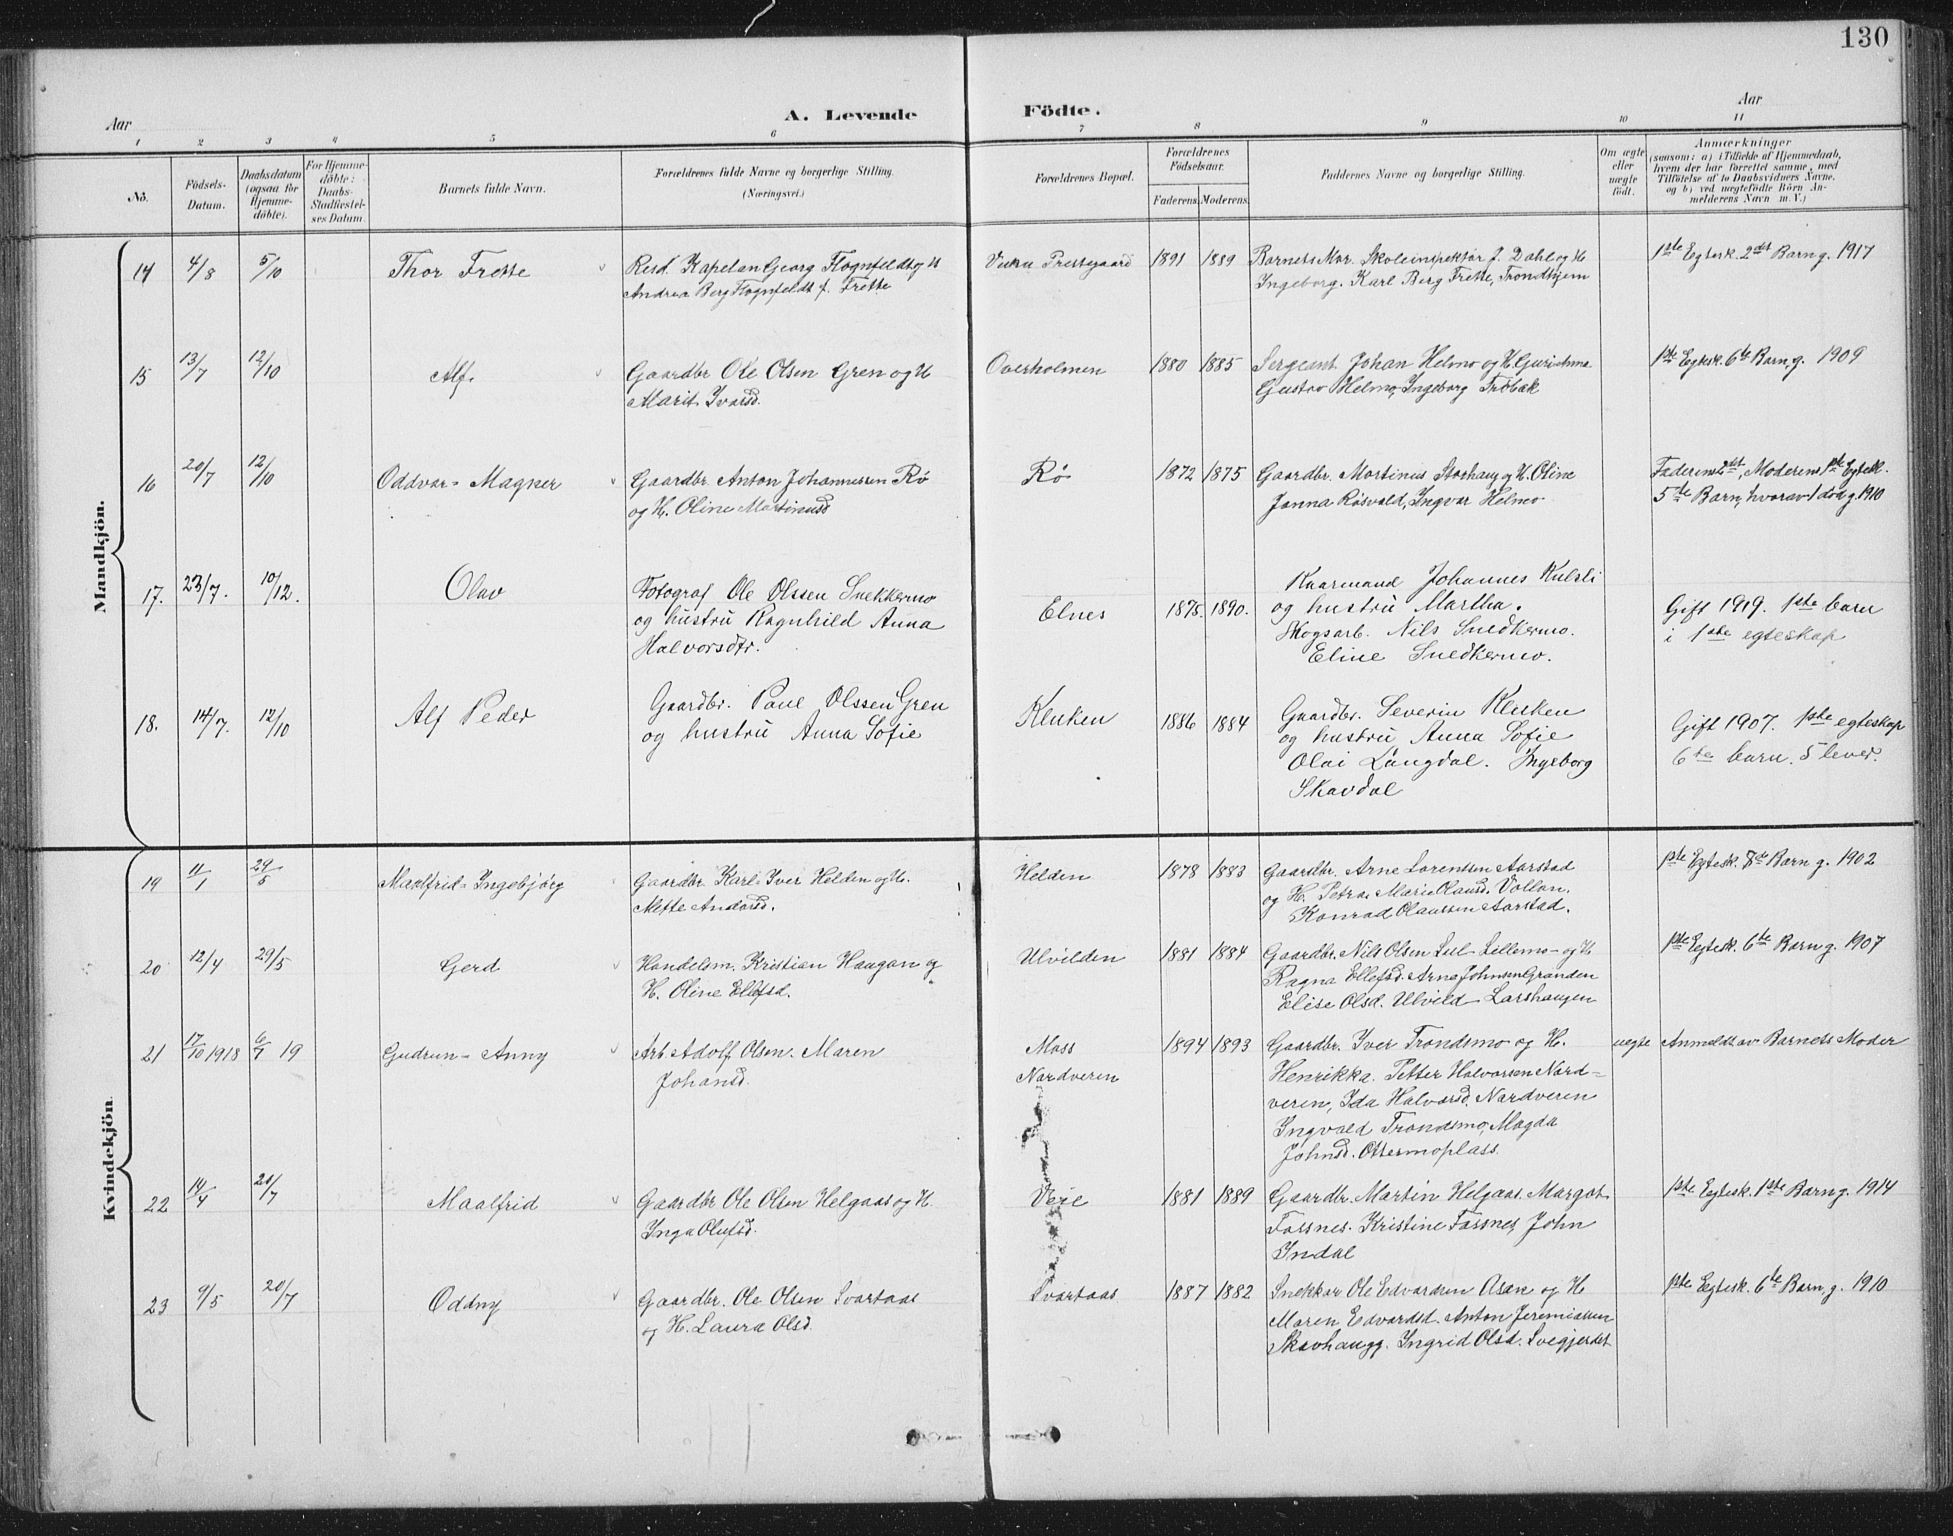 130
A. Levende Födte.
Aar
Aar
1 2 3 4 5 6 7 8 9 10 11
No.
Födsels-
Datum.
Daabsdatum
(ogsaa for
Hjemme-
döbte).
For Hjemme-
döbte:
Daabs-
Stadfæstel-
ses Datum.
Barnets fulde Navn.
Forældrenes fulde Navne og borgerlige Stilling.
(Næringsvei.)
Forældrenes Bopæl.
Forældrenes
Födselsaar.
Faderens. Moderens.
Faddernes Navne og borgerlige Stilling.
Om ægte
eller
uægte
födt.
Anmærkninger
(saasom: a) i Tilfælde af Hjemmedaab,
hvem der har forrettet samme, med
Tilföielse af to Daabsvidners Navne,
og b) ved uægtefödte Börn An-
melderens Navn m. V.)
Mandkjön.
14 4/8 5/10 Thor Frette Resd. Kapelan Georg Flognfeldt og H Vuku Prestegaard 1891 1889 Barnets Mor. Skoleinspektør J. Dahl og H 1ste Egtesk. 2det Barn g. 1917
Andrea Berg Flognfeldt f. Frette Ingeborg. Karl Berg Frette, Trondhjem
15 13/7 12/10 Alf. Gaardbr Ole Olsen Gren og H Overholmen 1880 1885 Sergeant Johan Helmo og H. Gurianna 1ste Egtesk. 6te Barn, g. 1909
Marit Ivarsd. Gustav Helmo, Ingeborg Trøbak
16 20/7 12/10 Oddvar - Magner Gaardbr. Anton Johannessen Rø Rø 1872 1875 Gaardbr. Mortinus Storhaug og H. Oline Faderens 2det, Moderens 1ste Egtesk.
og H. Oline Mortinusd Janna Røsvald, Ingvar Helmo 5te Barn, hvorav 1 død g. 1910
17. 23/7. 10/12. Olav Fotograf Ole Olssen Snekkermo Elnes 1875. 1890. Kaarmand Johannes Kulsli
og hustru Ragnhild Anna og hustru Martha. Gift 1919. 1ste barn
Halvorsdtr. Skogsarb. Nils Snedkermo. i 1ste egteskap
Eline Snedkermo.
18. 14/7. 12/10 Alf Peder Gaardbr. Paul Olssen Gren Kluken 1886 1884 Gaardbr. Severin Kluken Gift 1907. 1ste egteskap
og hustru Anna Sofie og hustru Anna Sofie 6te barn. 5 lever.
Olai Langdal. Ingeborg
Skavdal
Kvindekjön.
19 11/1 29/5 Maalfrid - Ingebjørg Gaardbr. Karl Iver Helden og H. Helden 1878 1883 Gaardbr. Arne Lorentsen Aarstad 1ste Egtesk. 8de Barn g. 1902
Mette Andorsd. og H. Petra. Marie Olausd. Vollan.
Konrad Olaussen Aarstad.
20 12/4 29/5 Gerd Handelsm. Kristian Haugan og Ulvilden 1881 1884 Gaardbr. Nils Olsen Lul-Lillemo og H 1ste Egtesk. 6te Barn g. 1907
H. Oline Ellefsd. Ragna Ellefsd. Arne Johnsen Granden
Elise Olsd. Ulvild - Larshaugen
21 17/10 1918 6/7 19 Gudrun - Anny Arb. Adolf Olsen. Maren Moss 1894 1893 Gaardbr. Iver Trondsmo og H. uegte Anmeldt av Barnets Moder
Johansd. Nardveren Henrikka. Petter Halvorsen Nard-
veren, Ida Halvorsd. Nardveren
Ingvald Trondsmo, Magda
Johnsd. Ottermoplass.
22 14/4 20/7 Maalfrid Gaardbr Ole Olsen Helgaas og H. Veie 1881 1889 Gaardbr. Martin Helgaas. Margot 1ste Egtesk. 1ste Barn g. 1914
Inga Olufsd. Fossnes. Kristine Fossnes, John
Indal
23 9/5 20/7 Oddny Gaardbr. Ole Olsen Svartaas Svartaas 1887 1882 Snekker Ole Edvardsen Asan og H 1ste Egtesk. 6te Barn, g. 1910
og H. Laura Olsd. Maren Edvardsd. Anton Jeremiassen
Skavhaugg. Ingrid Olsd. Svegjerdet